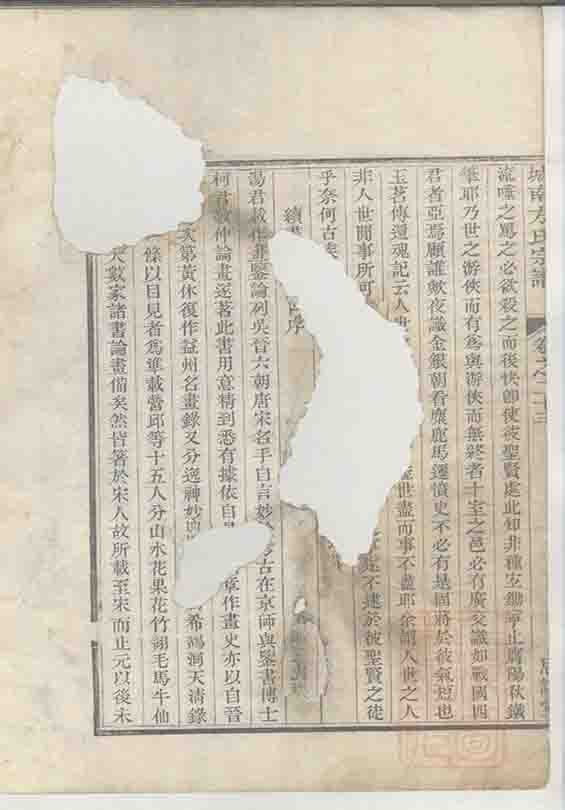 城南方氏宗譜 卷之二十三
流唾之罵之必欲殺之而後快卽使彼聖賢處此知非種 鋤寧止膚陽秋鐵
筆耶乃世之游俠而有爲與游俠而無終者十室之邑必有廣交譏如戰國四
君者亞焉顧誰歟夜識金銀朝看麋鹿馬遷憤史不必有是固將於彼氣短也
玉茗傳還魂記云人世 世盡而事不盡耶余謂人世之人
非人世間事所可 不逮於彼聖賢之徒
乎奈何古
續 序
湯君載作畫鑒論列吳晉六朝唐宋名手自言妙 古在京師與鑒書博士
柯君敬仲論畫遂著此書用意精到悉有據依自 章作畫史亦以自晉
次第黃休復作益州名畫錄又分逸神妙 希鵠洞天清錄
條以目見者爲準載營邱等十五人分山水花果花竹翎毛馬牛仙
數家諸書論畫備矣然皆著於宋人故所載至宋而止元以後未